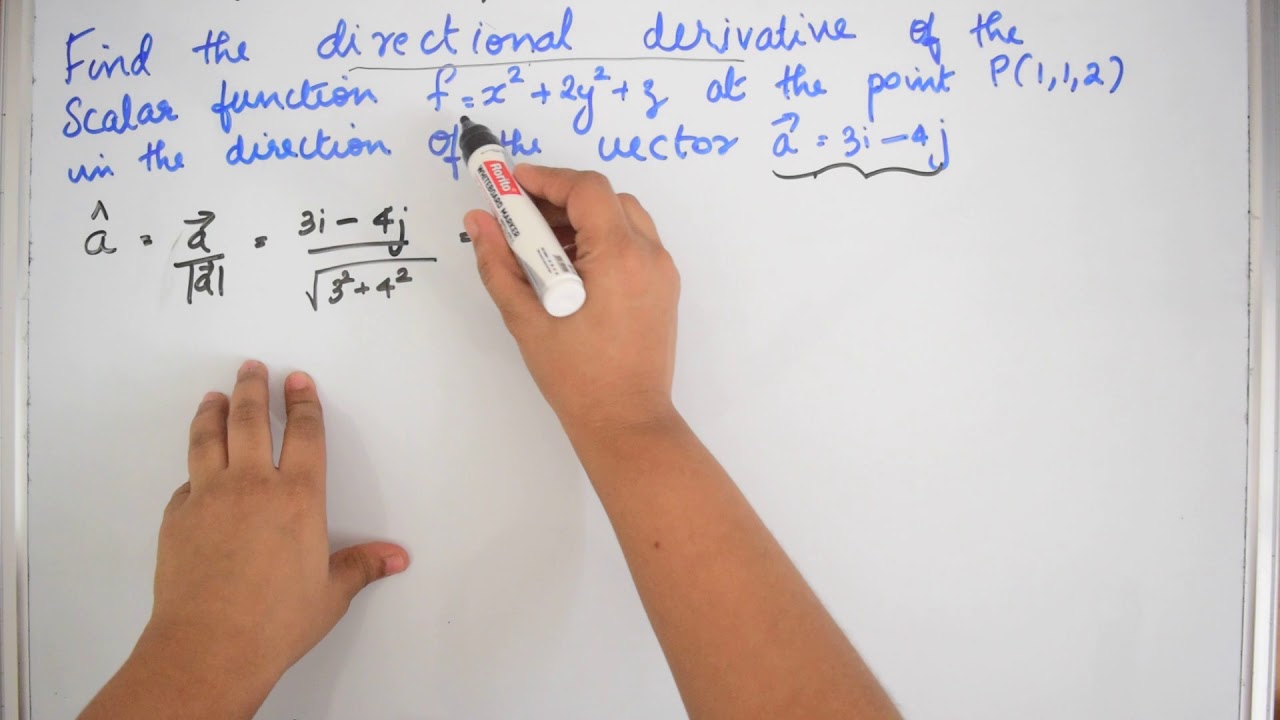 Find the directional derivative of the
Scalar function f = x² + 2y² + z at the point P(1,1,2)
in the direction of the vector a⃗ = 3i - 4j
â = a⃗/|a⃗| = 3i - 4j/√3² + 4² =
Rorito
WHITEBOARD MARKER